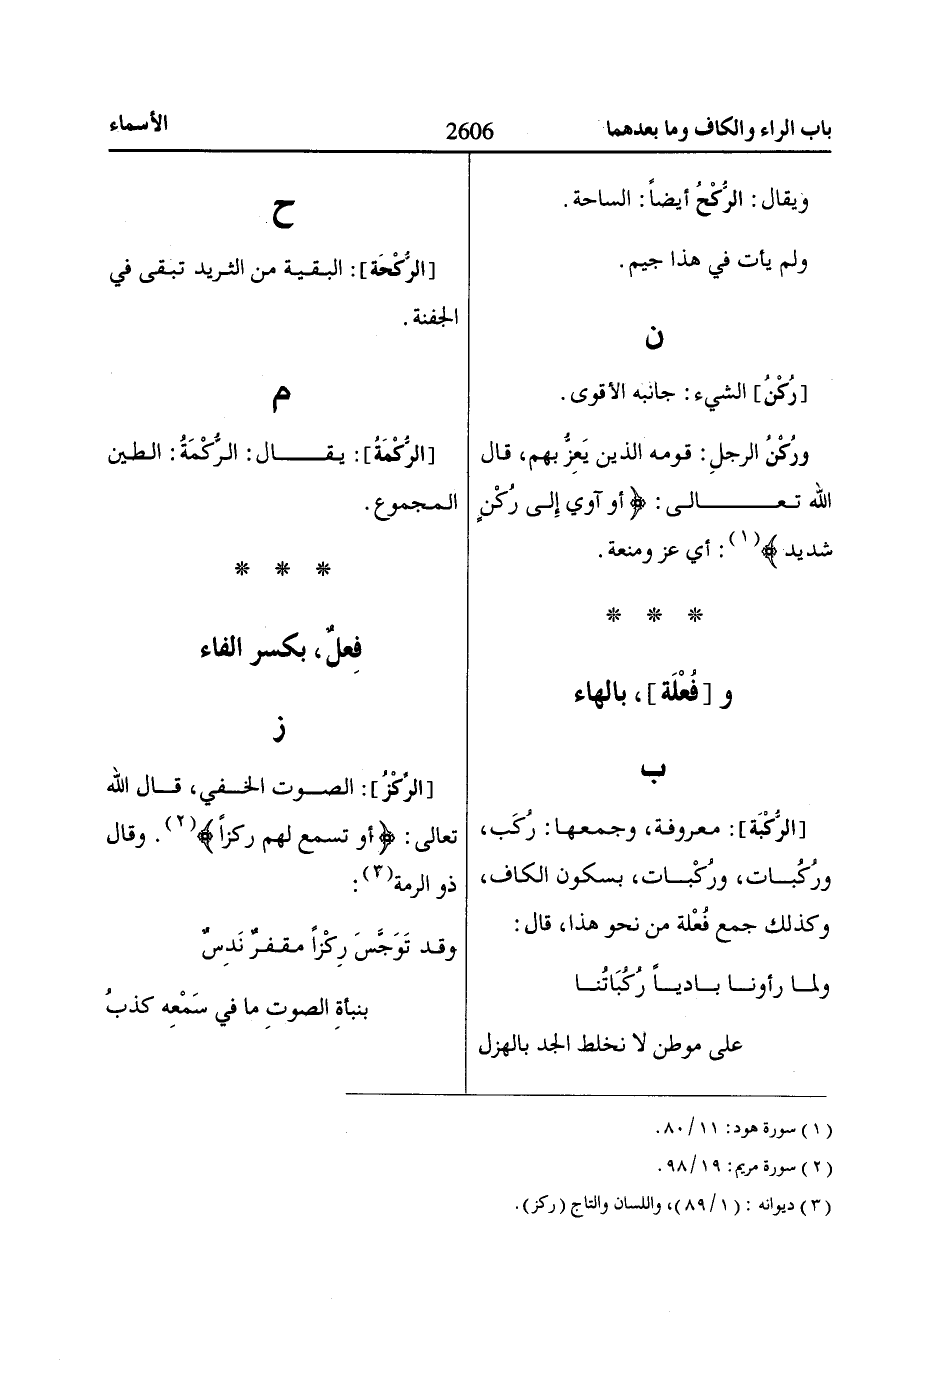 باب الراء والكاف وما بعدهما 2606 الأسماء
ويقال: الرُّكْحُ أيضاً: الساحة.
ولم يأت في هذا جيم.
ن
[رُكْنُ] الشيء: جانبه الأقوى.
ورُكْنُ الرجلِ: قومه الذين يَعِزُّ بهم، قال
الله تعالى: ﴿أو آوي إلى رُكْنٍ
شديد﴾(١): أي عز ومنعة.
* * *
و [فُعْلَة]، بالهاء
ب
[الرُّكْبَة]: معروفة، وجمعها: رُكَب،
ورُكُبات، ورُكْبات، بسكون الكاف،
وكذلك جمع فُعْلة من نحو هذا، قال:
ولما رأونا بادياً رُكُبَاتُنا
على موطن لا نخلط الجد بالهزل
ح
[الرُّكْحَة]: البقية من الثريد تبقى في
الجفنة.
م
[الرُّكْمَةُ]: يقال: الرُّكْمَةُ: الطين
المجموع.
* * *
فِعلٌ، بكسر الفاء
ز
[الرِّكْزُ]: الصوت الخفي، قال الله
تعالى: ﴿أو تسمع لهم ركزاً﴾(٢). وقال
ذو الرمة(٣):
وقد تَوَجَّسَ رِكْزاً مقفرٌ نَدِسٌ
بنبأةِ الصوتِ ما في سَمْعِه كذبُ
(١) سورة هود: ١١/ ٨٠.
(٢) سورة مريم: ١٩/ ٩٨.
(٣) ديوانه: (١/ ٨٩)، واللسان والتاج (ركز).